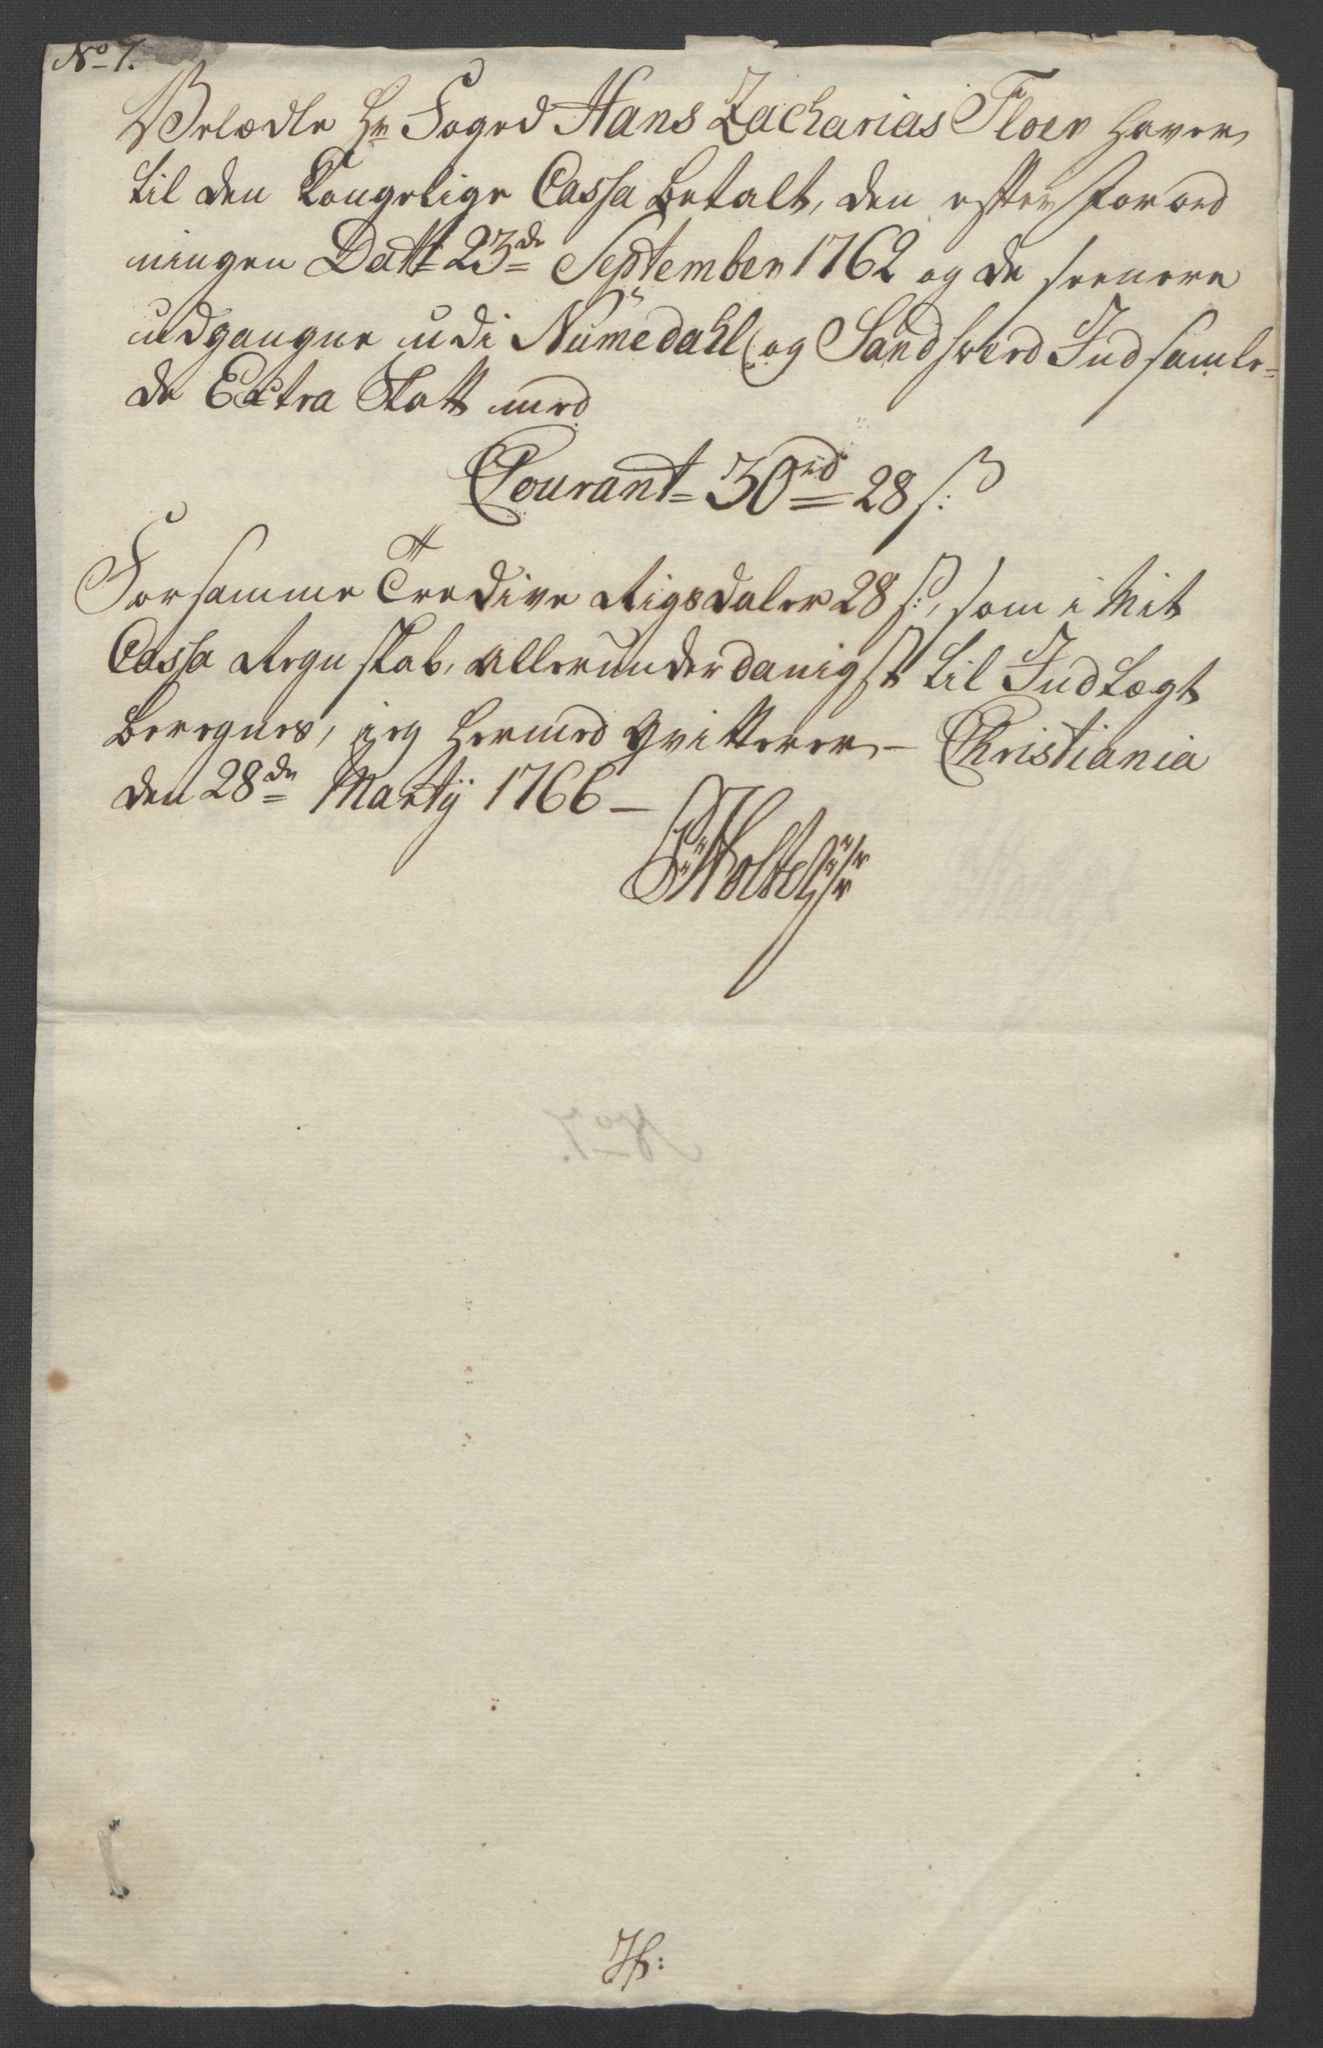 No 7.
Velædle Hr Foged Hans Zacharias Floer haver
til den Kongelige Cassa betalt, den efter Forord
ningen Datt 23de September 1762 og de seenere
udgangne udi Numedahl og Sandsverd Indsamle=
de Extra Skatt med
Courant = 30rd = 28 s:
For samme Tredive Rigsdaler 28 s:, som i Mit
Cassa Regnskab, allerunderdanigst til Indtægt
beregnes, jeg hermed qvitterer, — Christiania
den 28de Martij 1766 —
Holte
No 7.